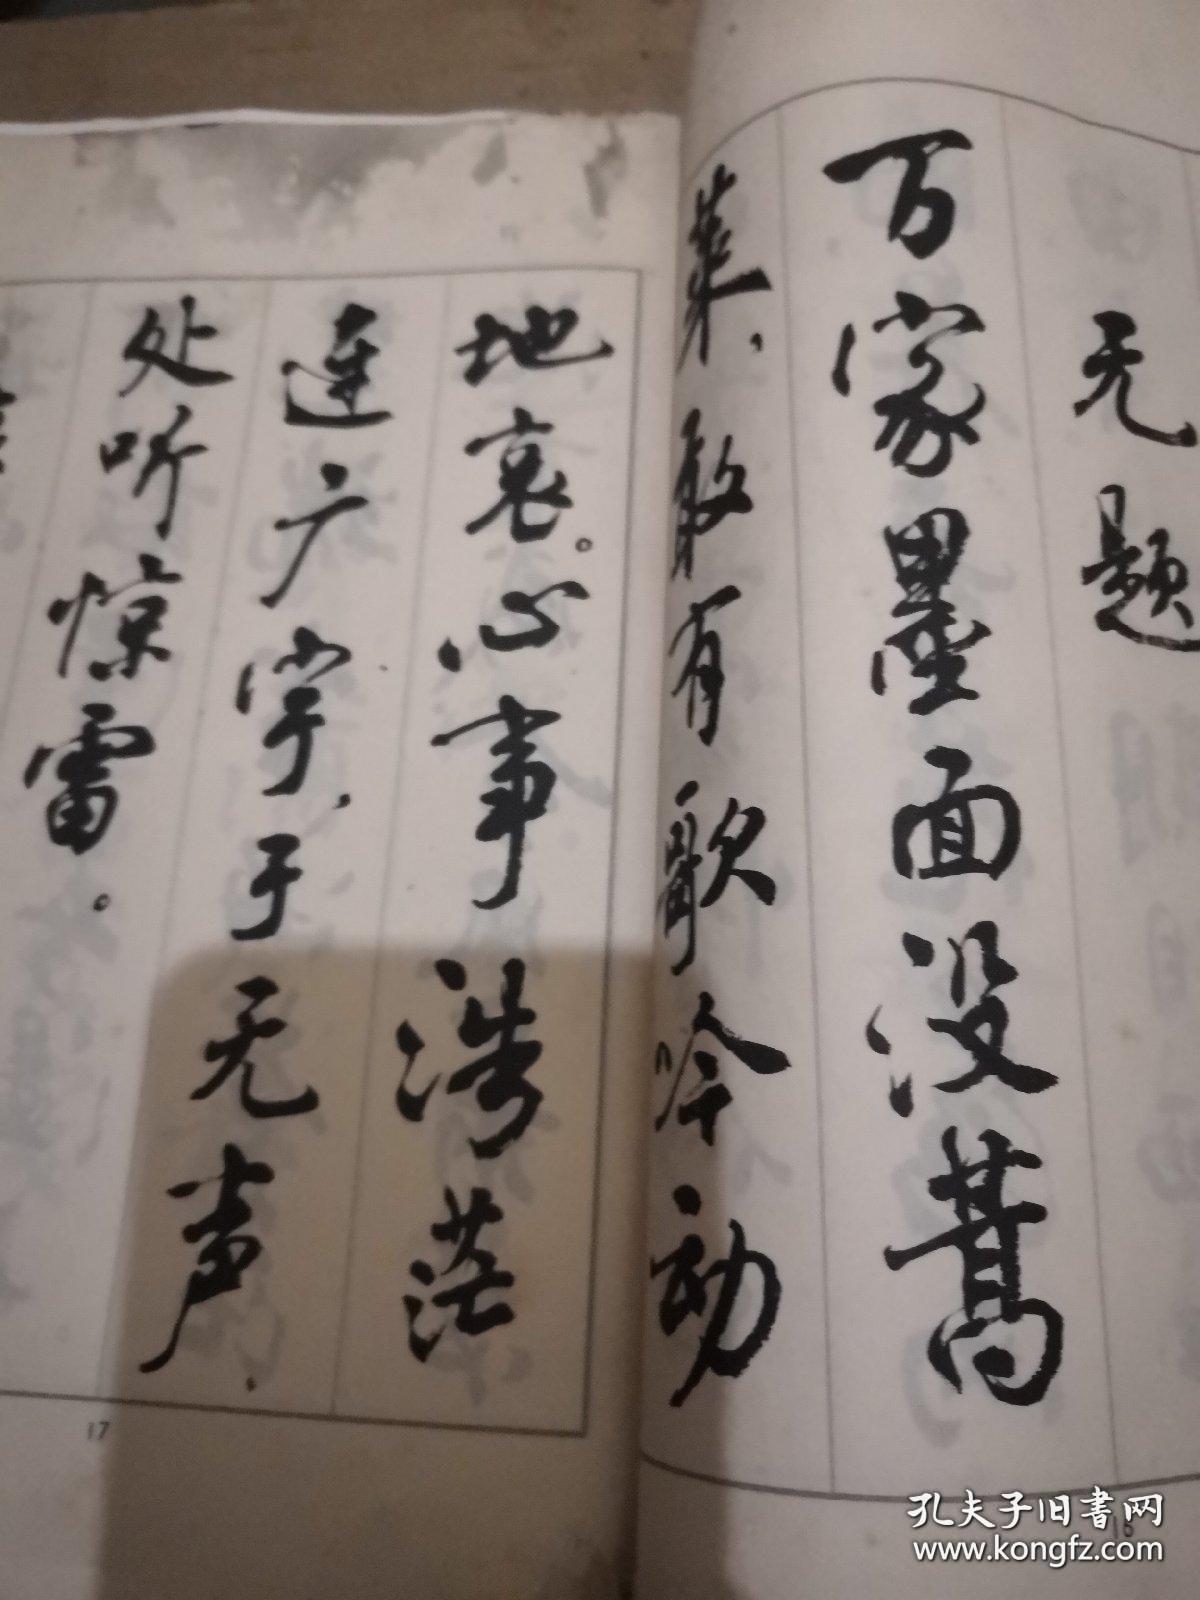 无题
万家墨面没蒿
莱，敢有歌吟动
地哀。心事浩茫
连广宇，于无声
处听惊雷。
17
16
孔夫子旧书网
www.kongfz.com